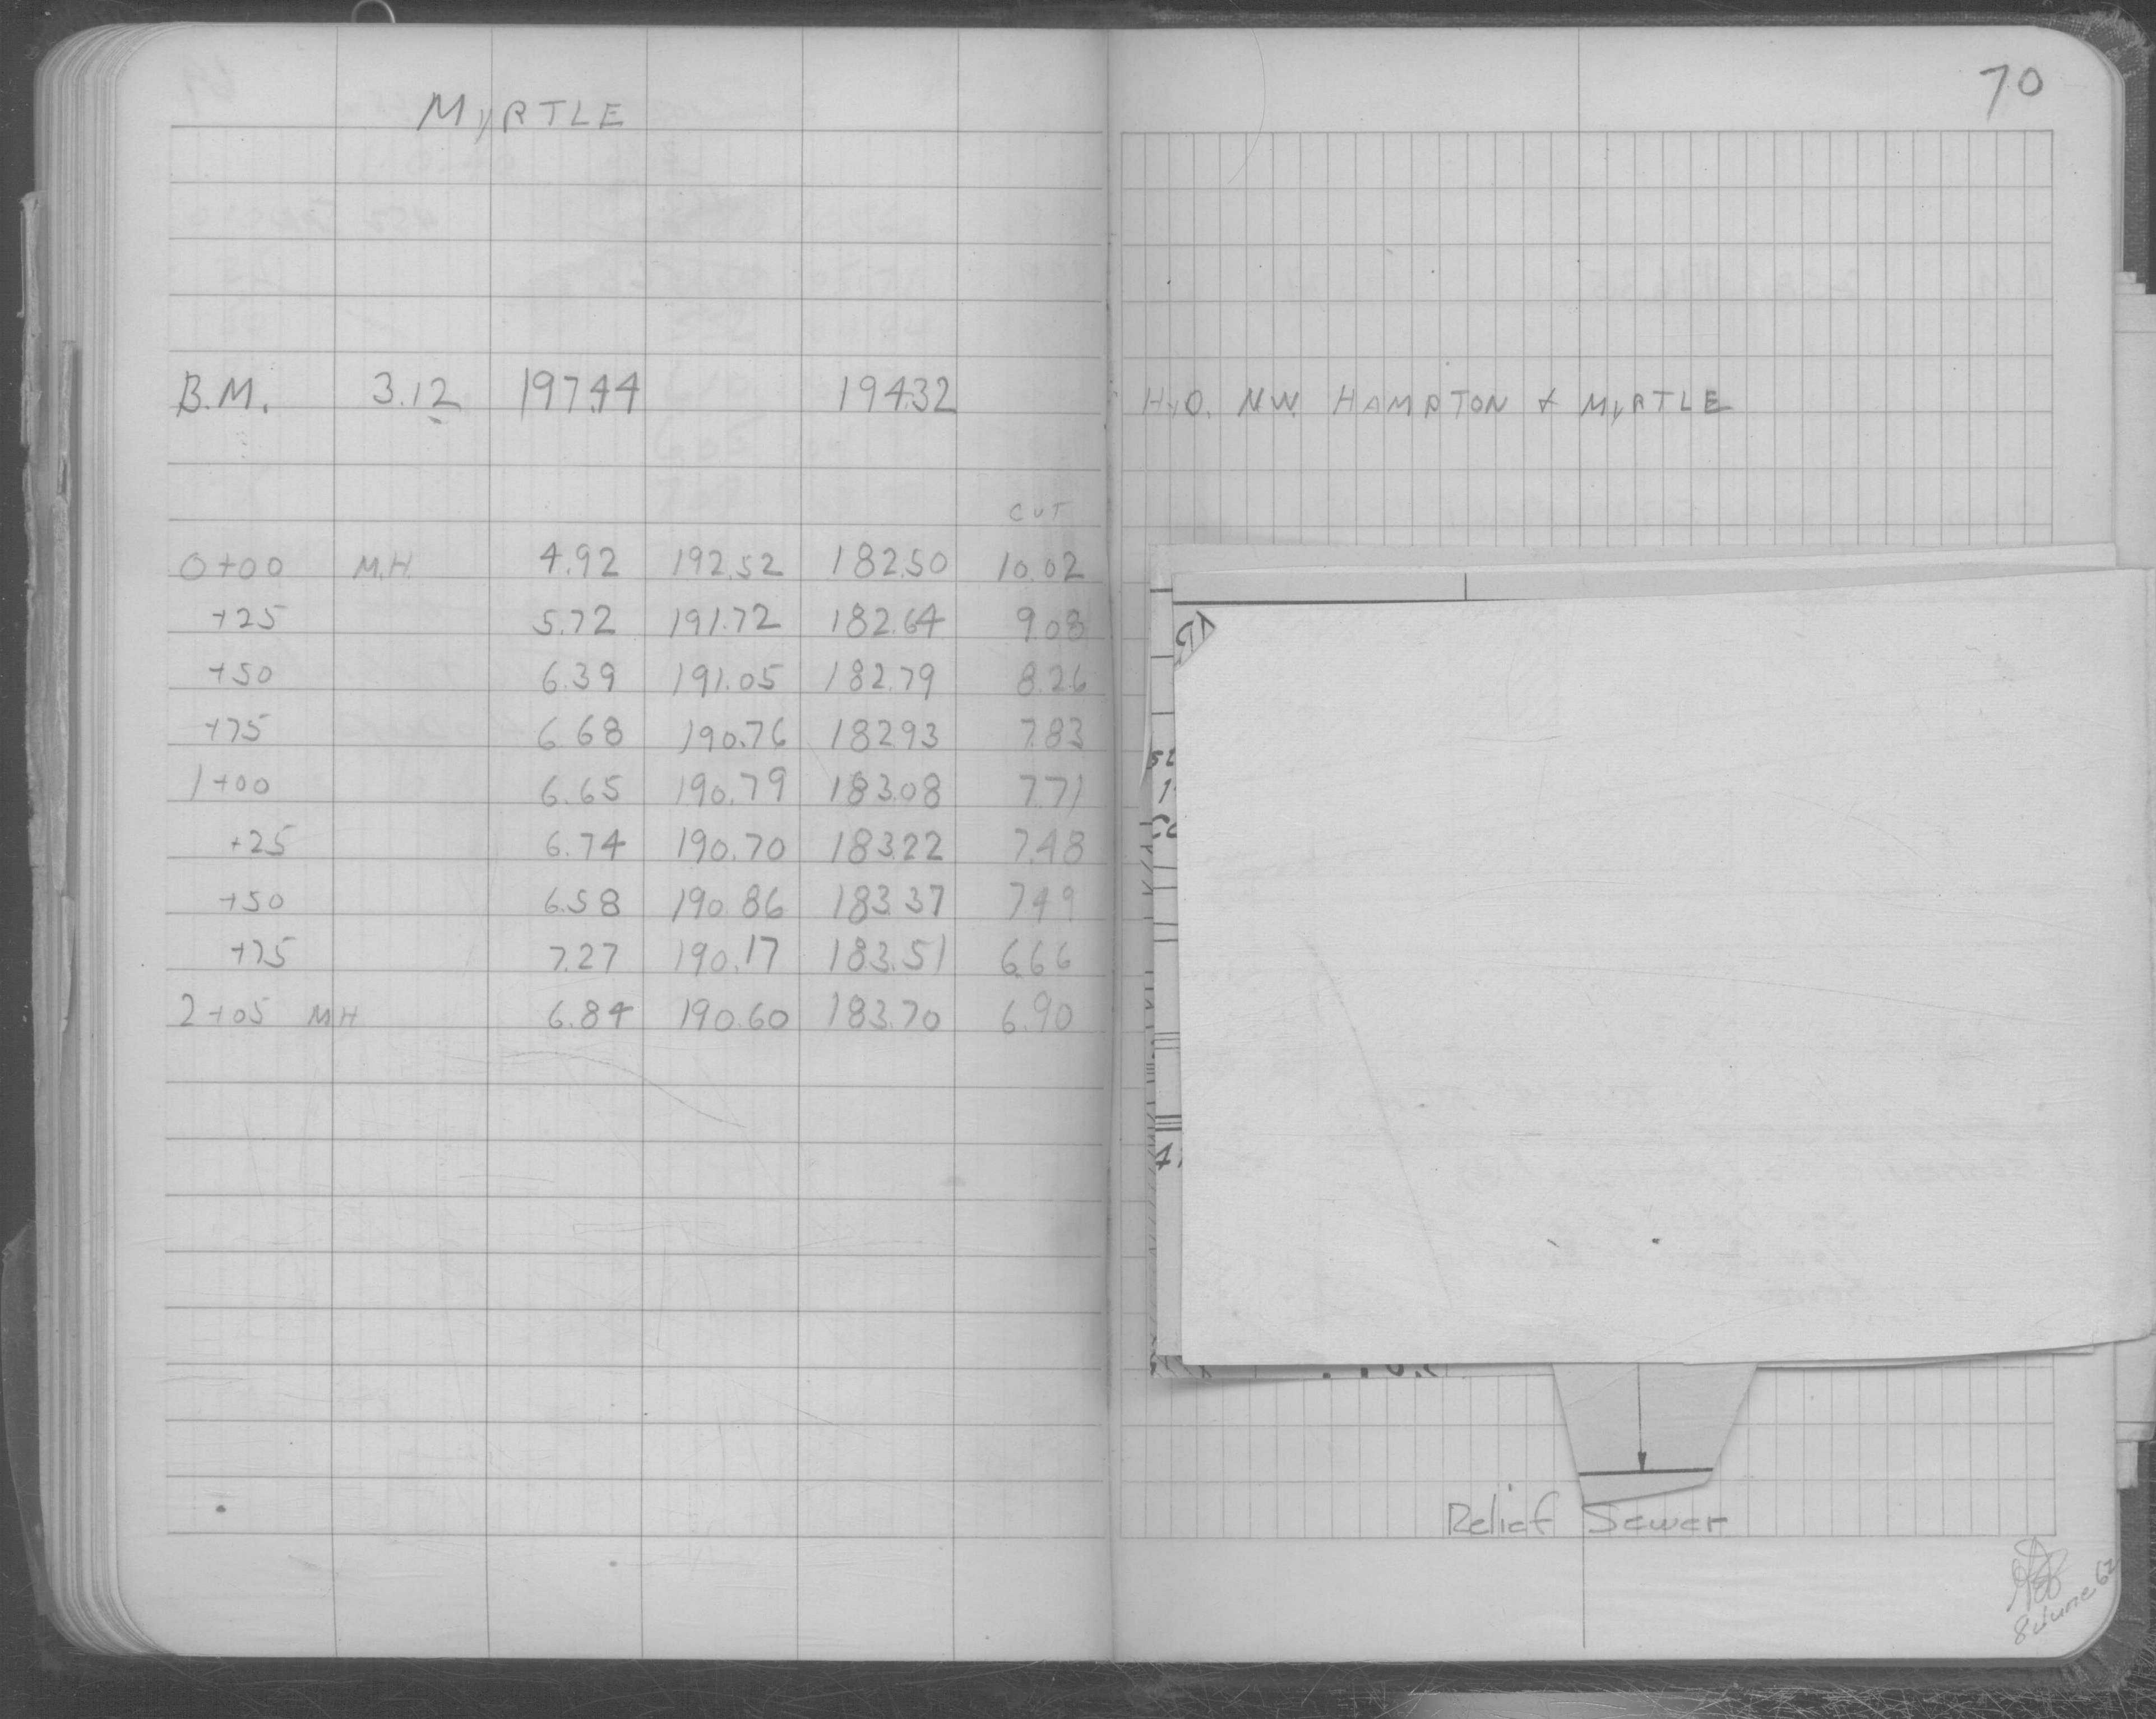 70
MyRTLE
B.M. 3.12 197.44 194.32 HyD. N.W. HAMPTON & MyRTLE
CUT
0+00 M.H. 4.92 192.52 182.50 10.02
+25 5.72 191.72 182.64 9.08
+50 6.39 191.05 182.79 8.26
+75 6.68 190.76 182.93 7.83
1+00 6.65 190.79 183.08 7.71
+25 6.74 190.70 183.22 7.48
+50 6.58 190.86 183.37 7.49
+75 7.27 190.17 183.51 6.66
2+05 MH 6.84 190.60 183.70 6.90
Relief Sewer
8 June 62